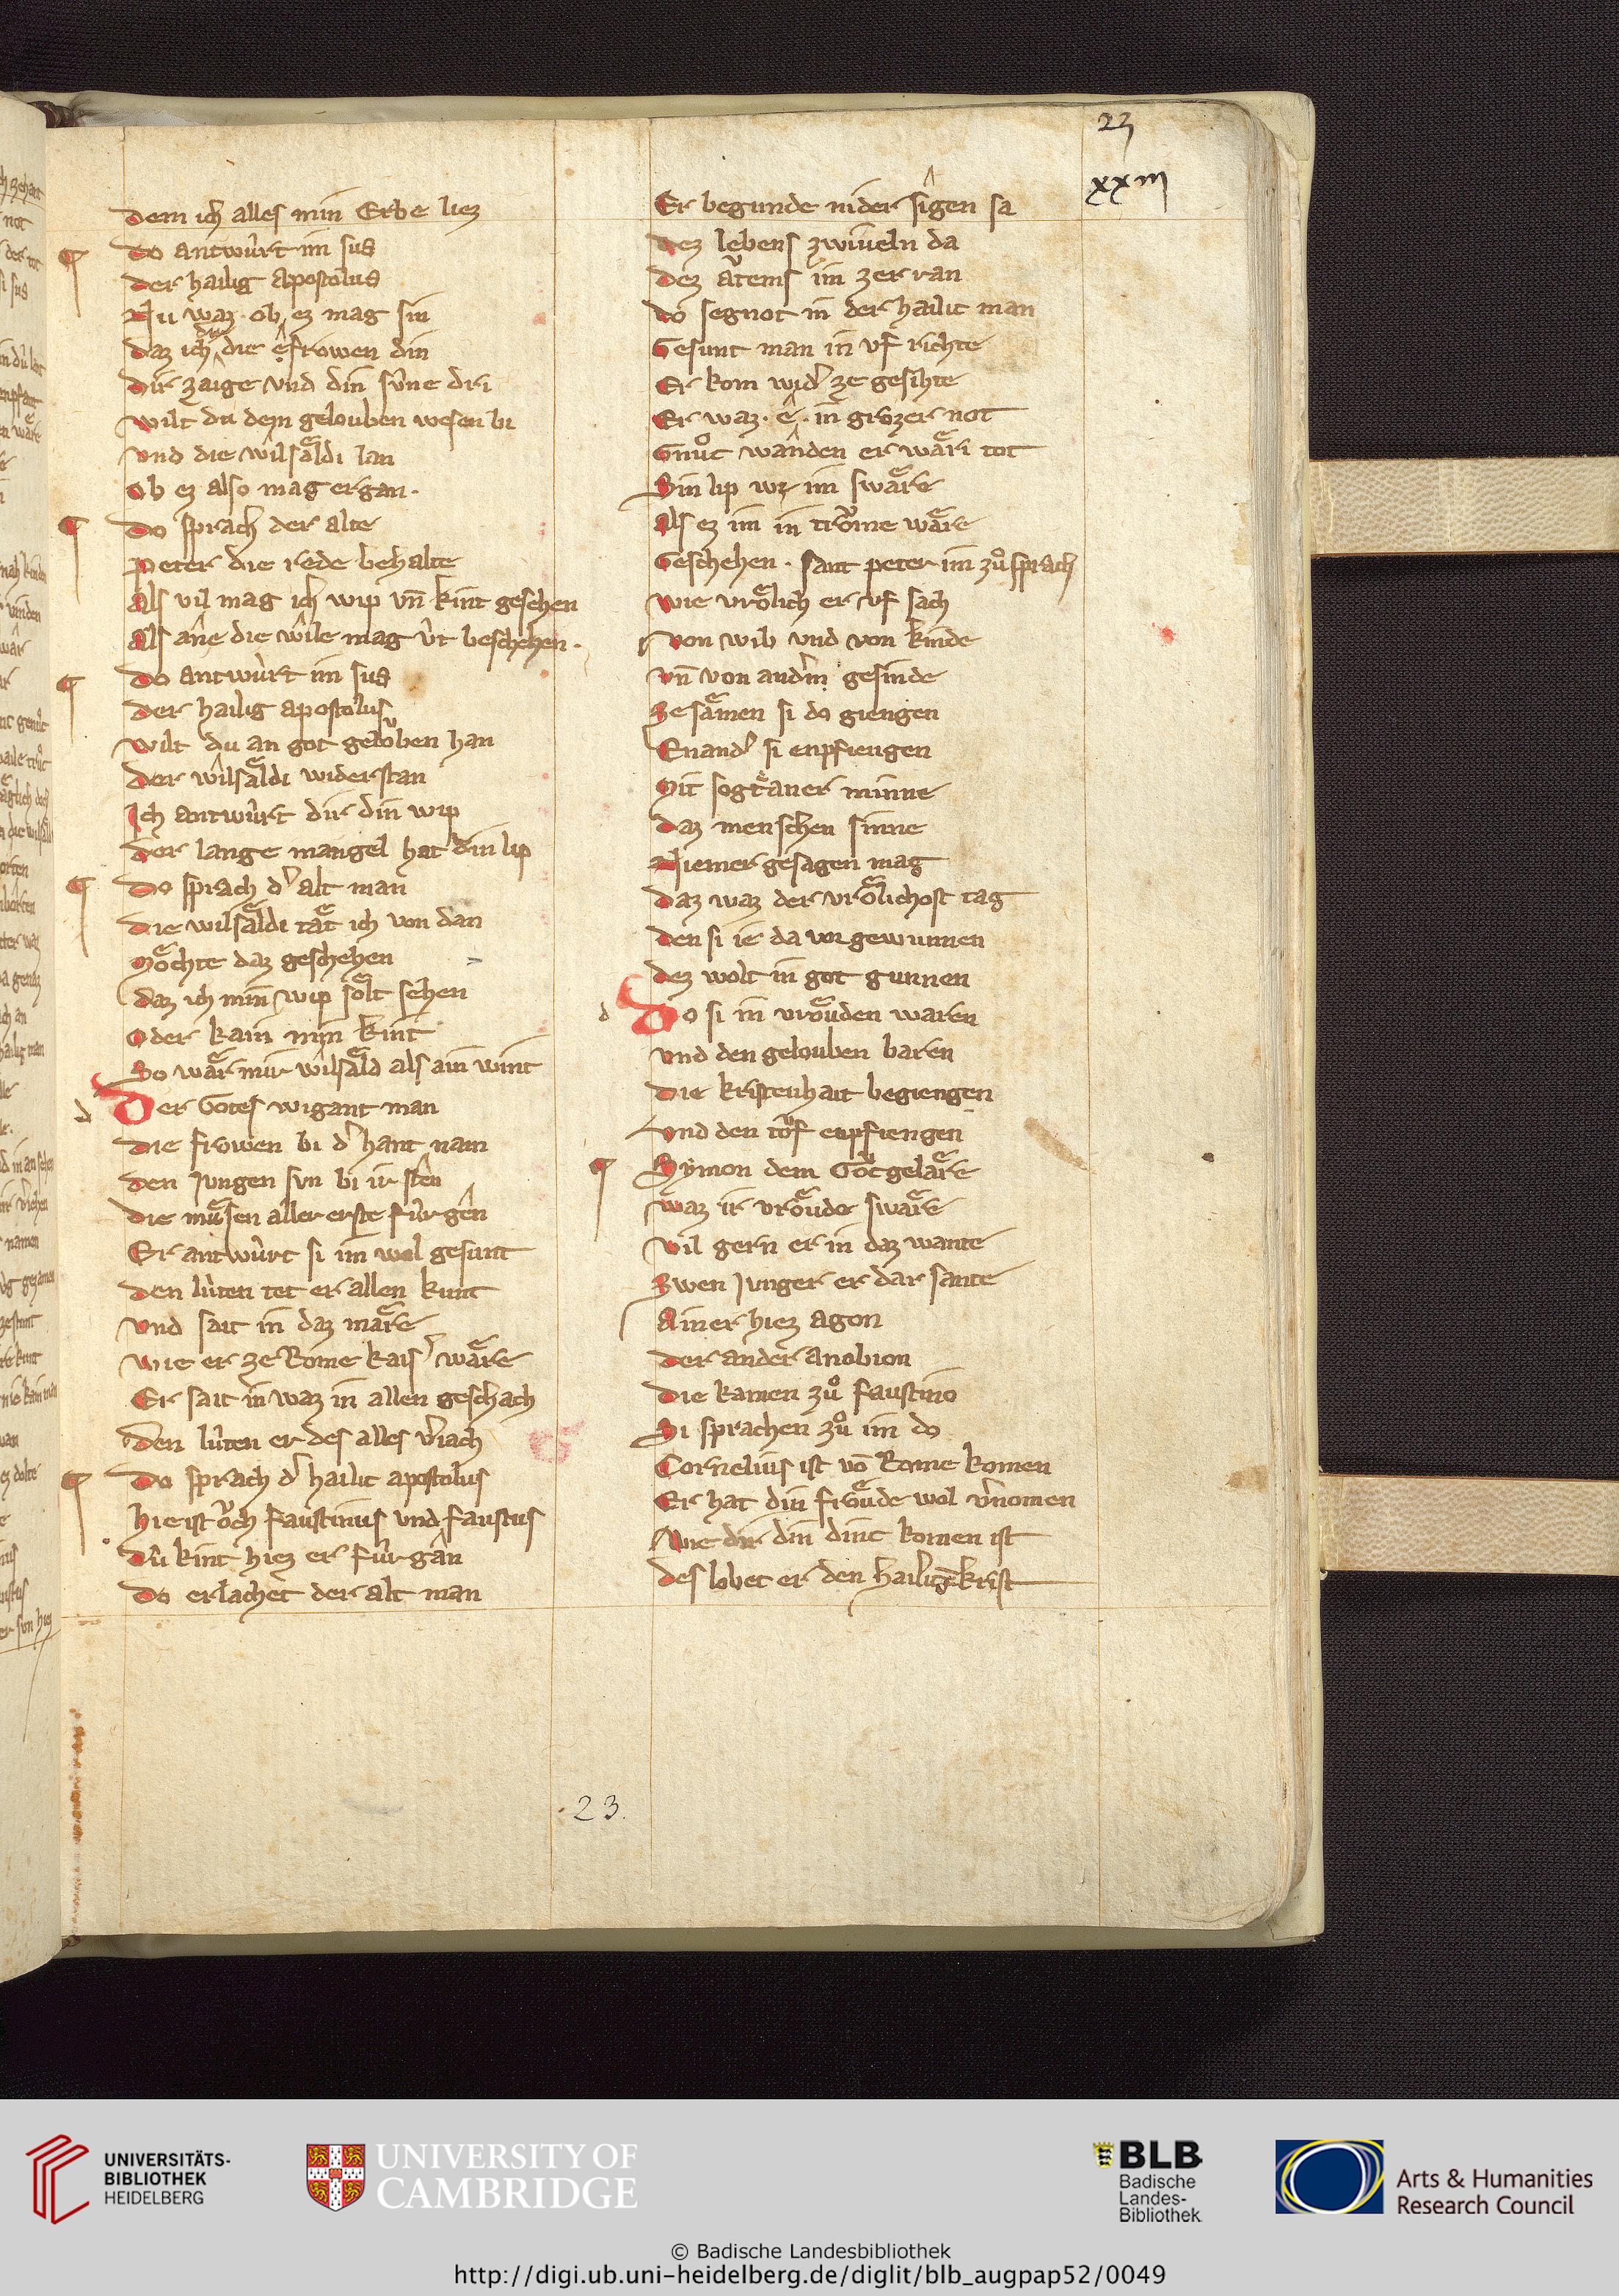 23
xxiii
dem ich alles min Erbe liez
do antwûrt im sus
der hailig apostolus
Nu waz · ob ez mag sin
daz ich die êfrowen din
dir zaige vnd din sûne dri
wilt du dem gelouben wesen bi
vnd die wîlsaͤldi lan
Ob ez also mag ergan ·
do sprach der alte
Peter die rede behalte
Als vil mag ich wip vn̄ kint gesehen
Als âne die wîle mag ût beschehen ·
do antwûrt im sus
der hailig apostolus
wilt du an got geloͮben han
der wîlsaͤldi widerstan
Ich antwûrt dir din wip
der lange mangel hat din lip
do sprach d' alt man
die wilsaͤldi taͤt ich von dan
Moͤchte daz geschehen
daz ich min wip soͤlt sehen
Oder kain min kint
So waͤr mir wîlsaͤld als ain wint
d
Der Gotes wigant man
die frowen bi d' hant nam
den Jungen svn bi ir sten
die muͤsen aller erste fûr gên
Er antwûrt si im wol gesunt
den lûten tet er allen kunt
vnd sait in daz maͤre
wie er ze Rome kais' waͤre
Er sait in waz in allen geschach
den lûten er des alles v'iach
do sprach d' hailic apostolus
hie ist oͮch faustinus vnd faustus
dû kint hiez er fûr gân
do erlachet der alt man
Er begunde nider sîgen sa
dez lebens zwiueln da
dez atems im zer ran
do segnot in der hailic man
Gesunt man in vf richte
Er kom wid' ze gesihte
Er waz · ê · in grozer not
Gnuͦc wanden er waͤri tot
Sin lip wz im swaͤre
Als ez im in troͮme waͤre
Geschehen · sant peter im zuͦ sprach
wie vroͤlich er vf sach
von wib vnd von kinde
vn̄ von and'm gesinde
ze saͤmen si do giengen
Enand' si enpfiengen
Mit sogtaner minne
daz menschen sinne
Niemer gesagen mag
daz waz der vroͤlichost tag
den si ie da vor gewunnen
dez wolt in got gunnen
d
Do si in vroͤuden waren
vnd den gelouben baren
die kristenhait begiengen
vnd den toͮf enpfiengen
Symon dem Gotgelaͤre
waz ir vroͤude swaͤre
vil gern er in daz wante
zwen Junger er dar sante
Ainer hiez agon
der ander anobion
die kamen zuͦ faustino
Si sprachen zuͦ im do
Cornelius ist vō Rome komen
Er hat din froͤude wol v'nomen
wie dir din dinc komen ist
des lobet er den hailigē krist
23.
UNIVERSITÄTS-
BIBLIOTHEK
HEIDELBERG
UNIVERSITY OF
CAMBRIDGE
BLB
Badische
Landes-
Bibliothek
Arts & Humanities
Research Council
© Badische Landesbibliothek
http://digi.ub.uni-heidelberg.de/diglit/blb_augpap52/0049